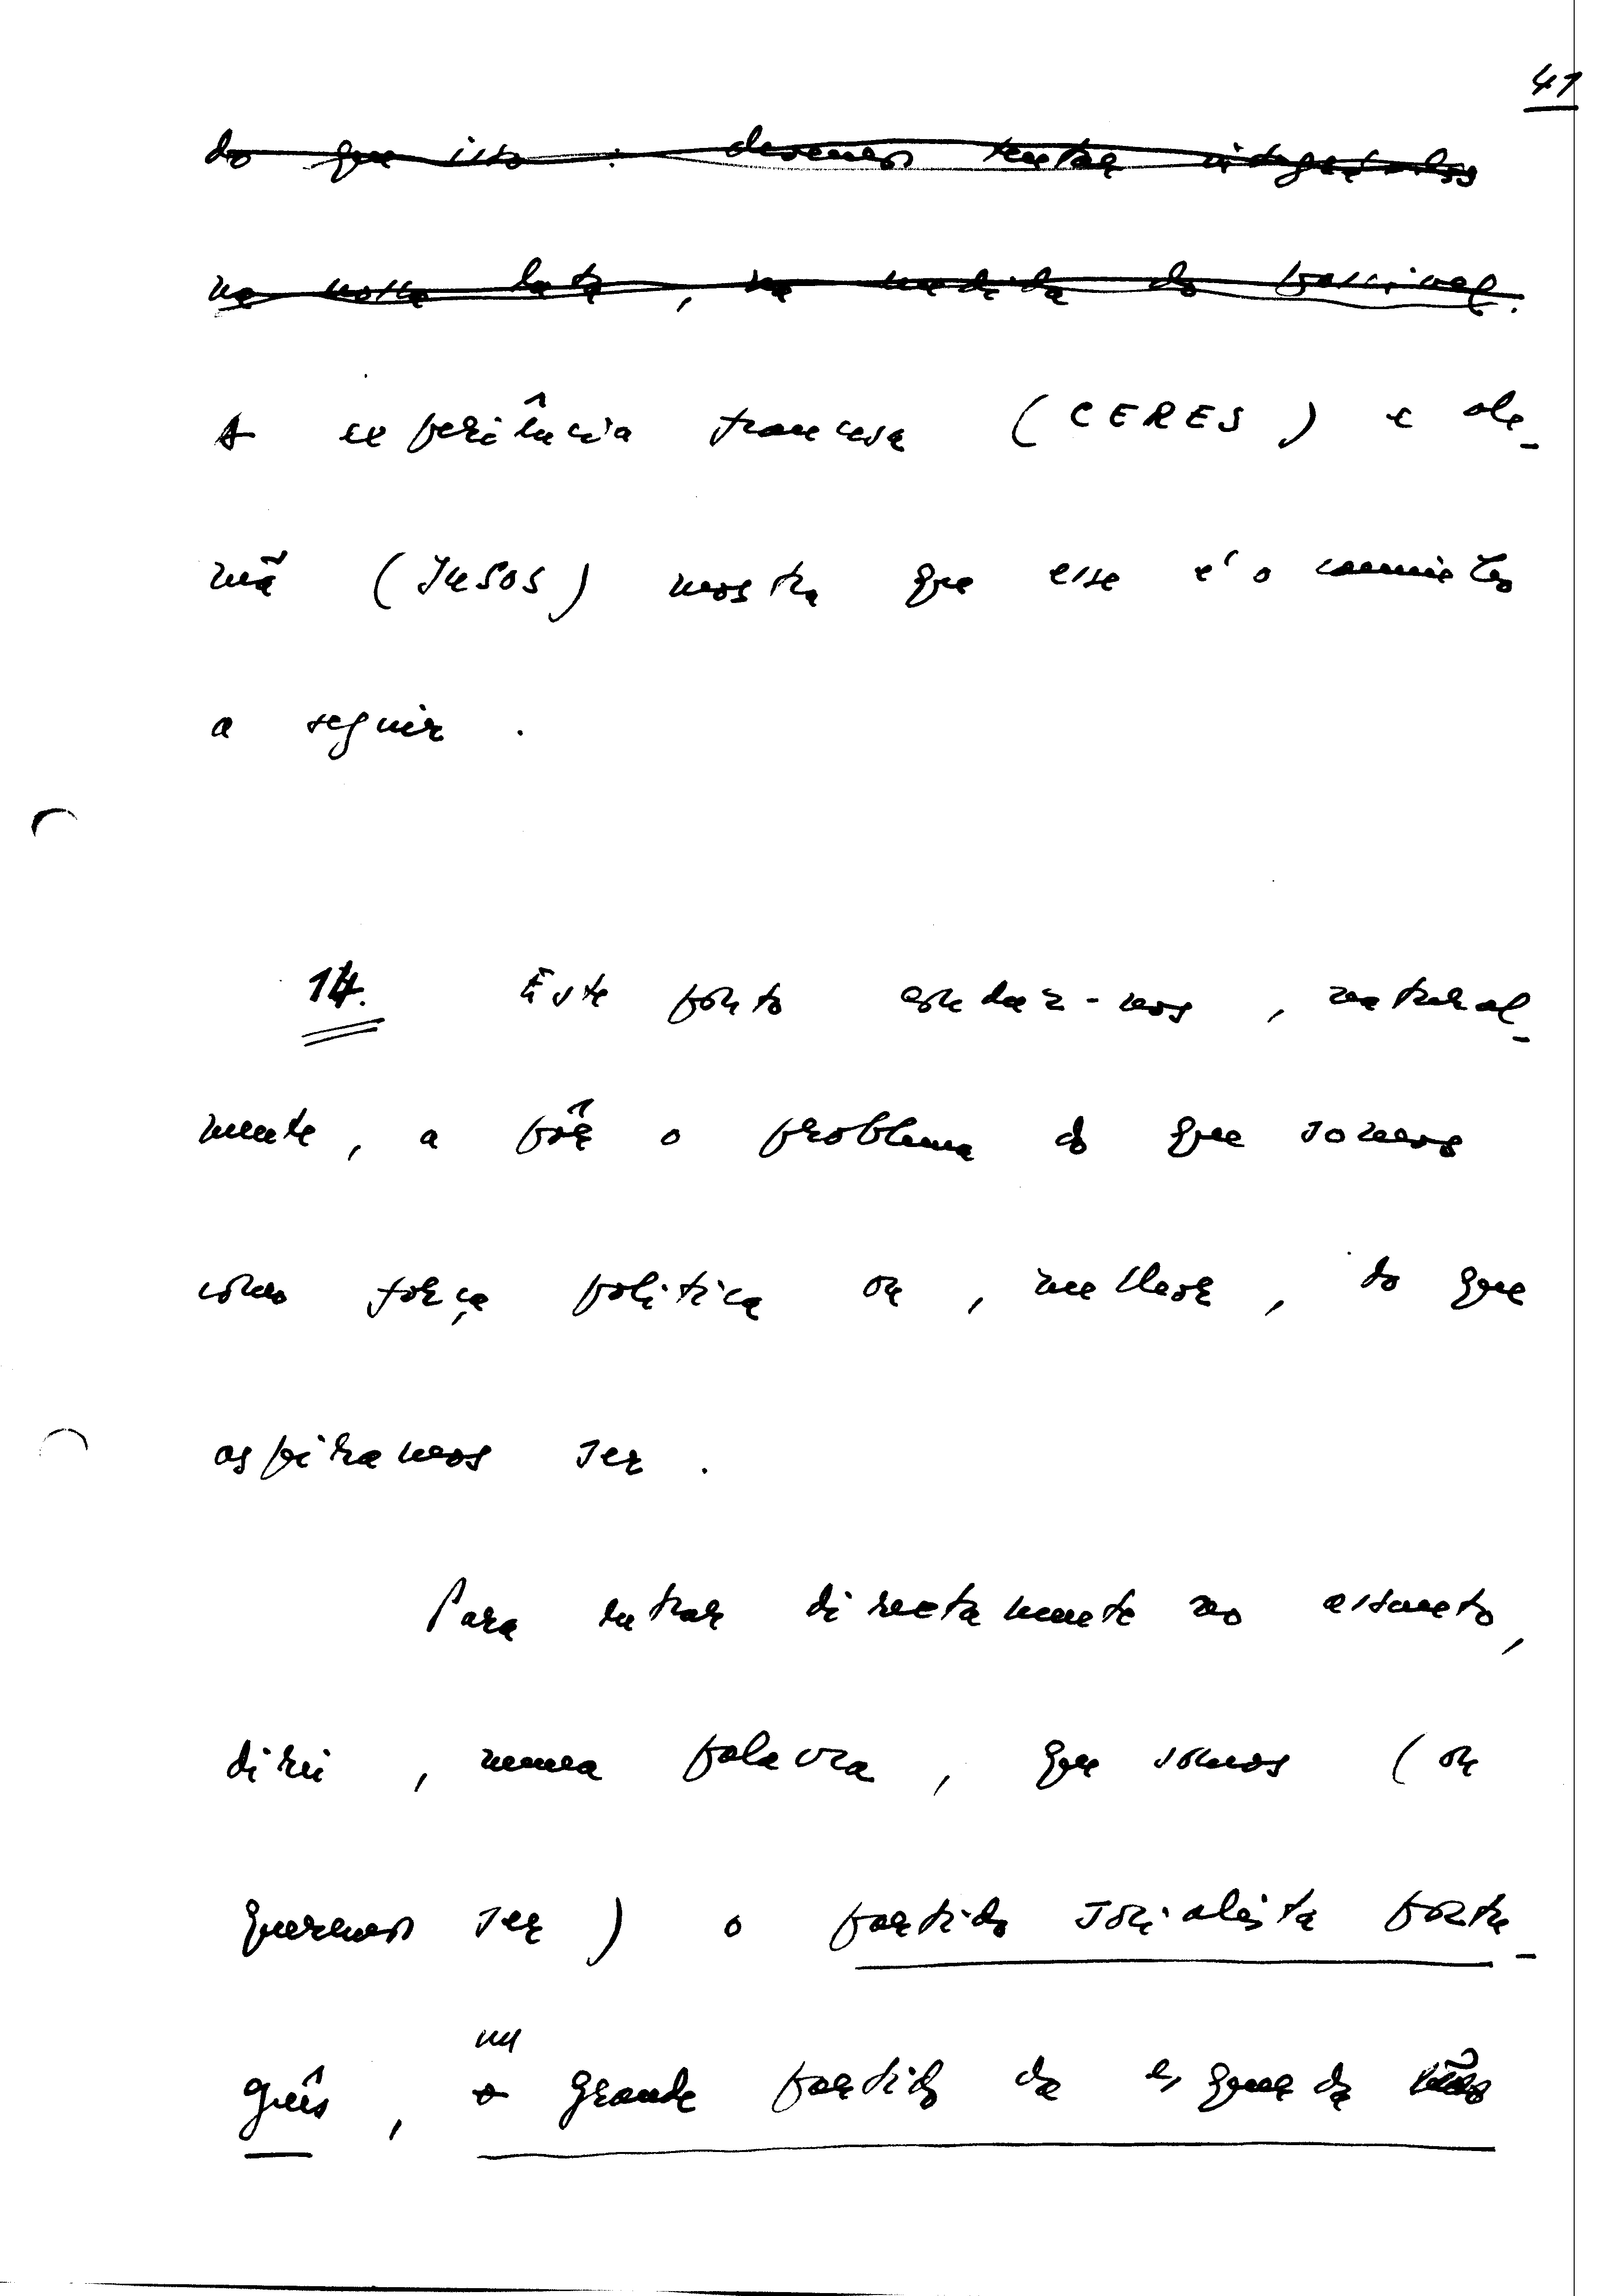 41
do que isto : devemos tentar integrá-los
na nossa luta, na medida do possível.
A experiência francesa (CERES) e ale-
mã (JUSOS) mostra que esse é o caminho
a seguir.
14. Este ponto conduz-nos, natural-
mente, a pôr o problema do que somos
como força política ou, melhor, do que
aspiramos ser.
Para entrar directamente no assunto,
direi, numa palavra, que somos (ou
queremos ser) o partido socialista portu-
um
guês, o grande partido da esquerda não